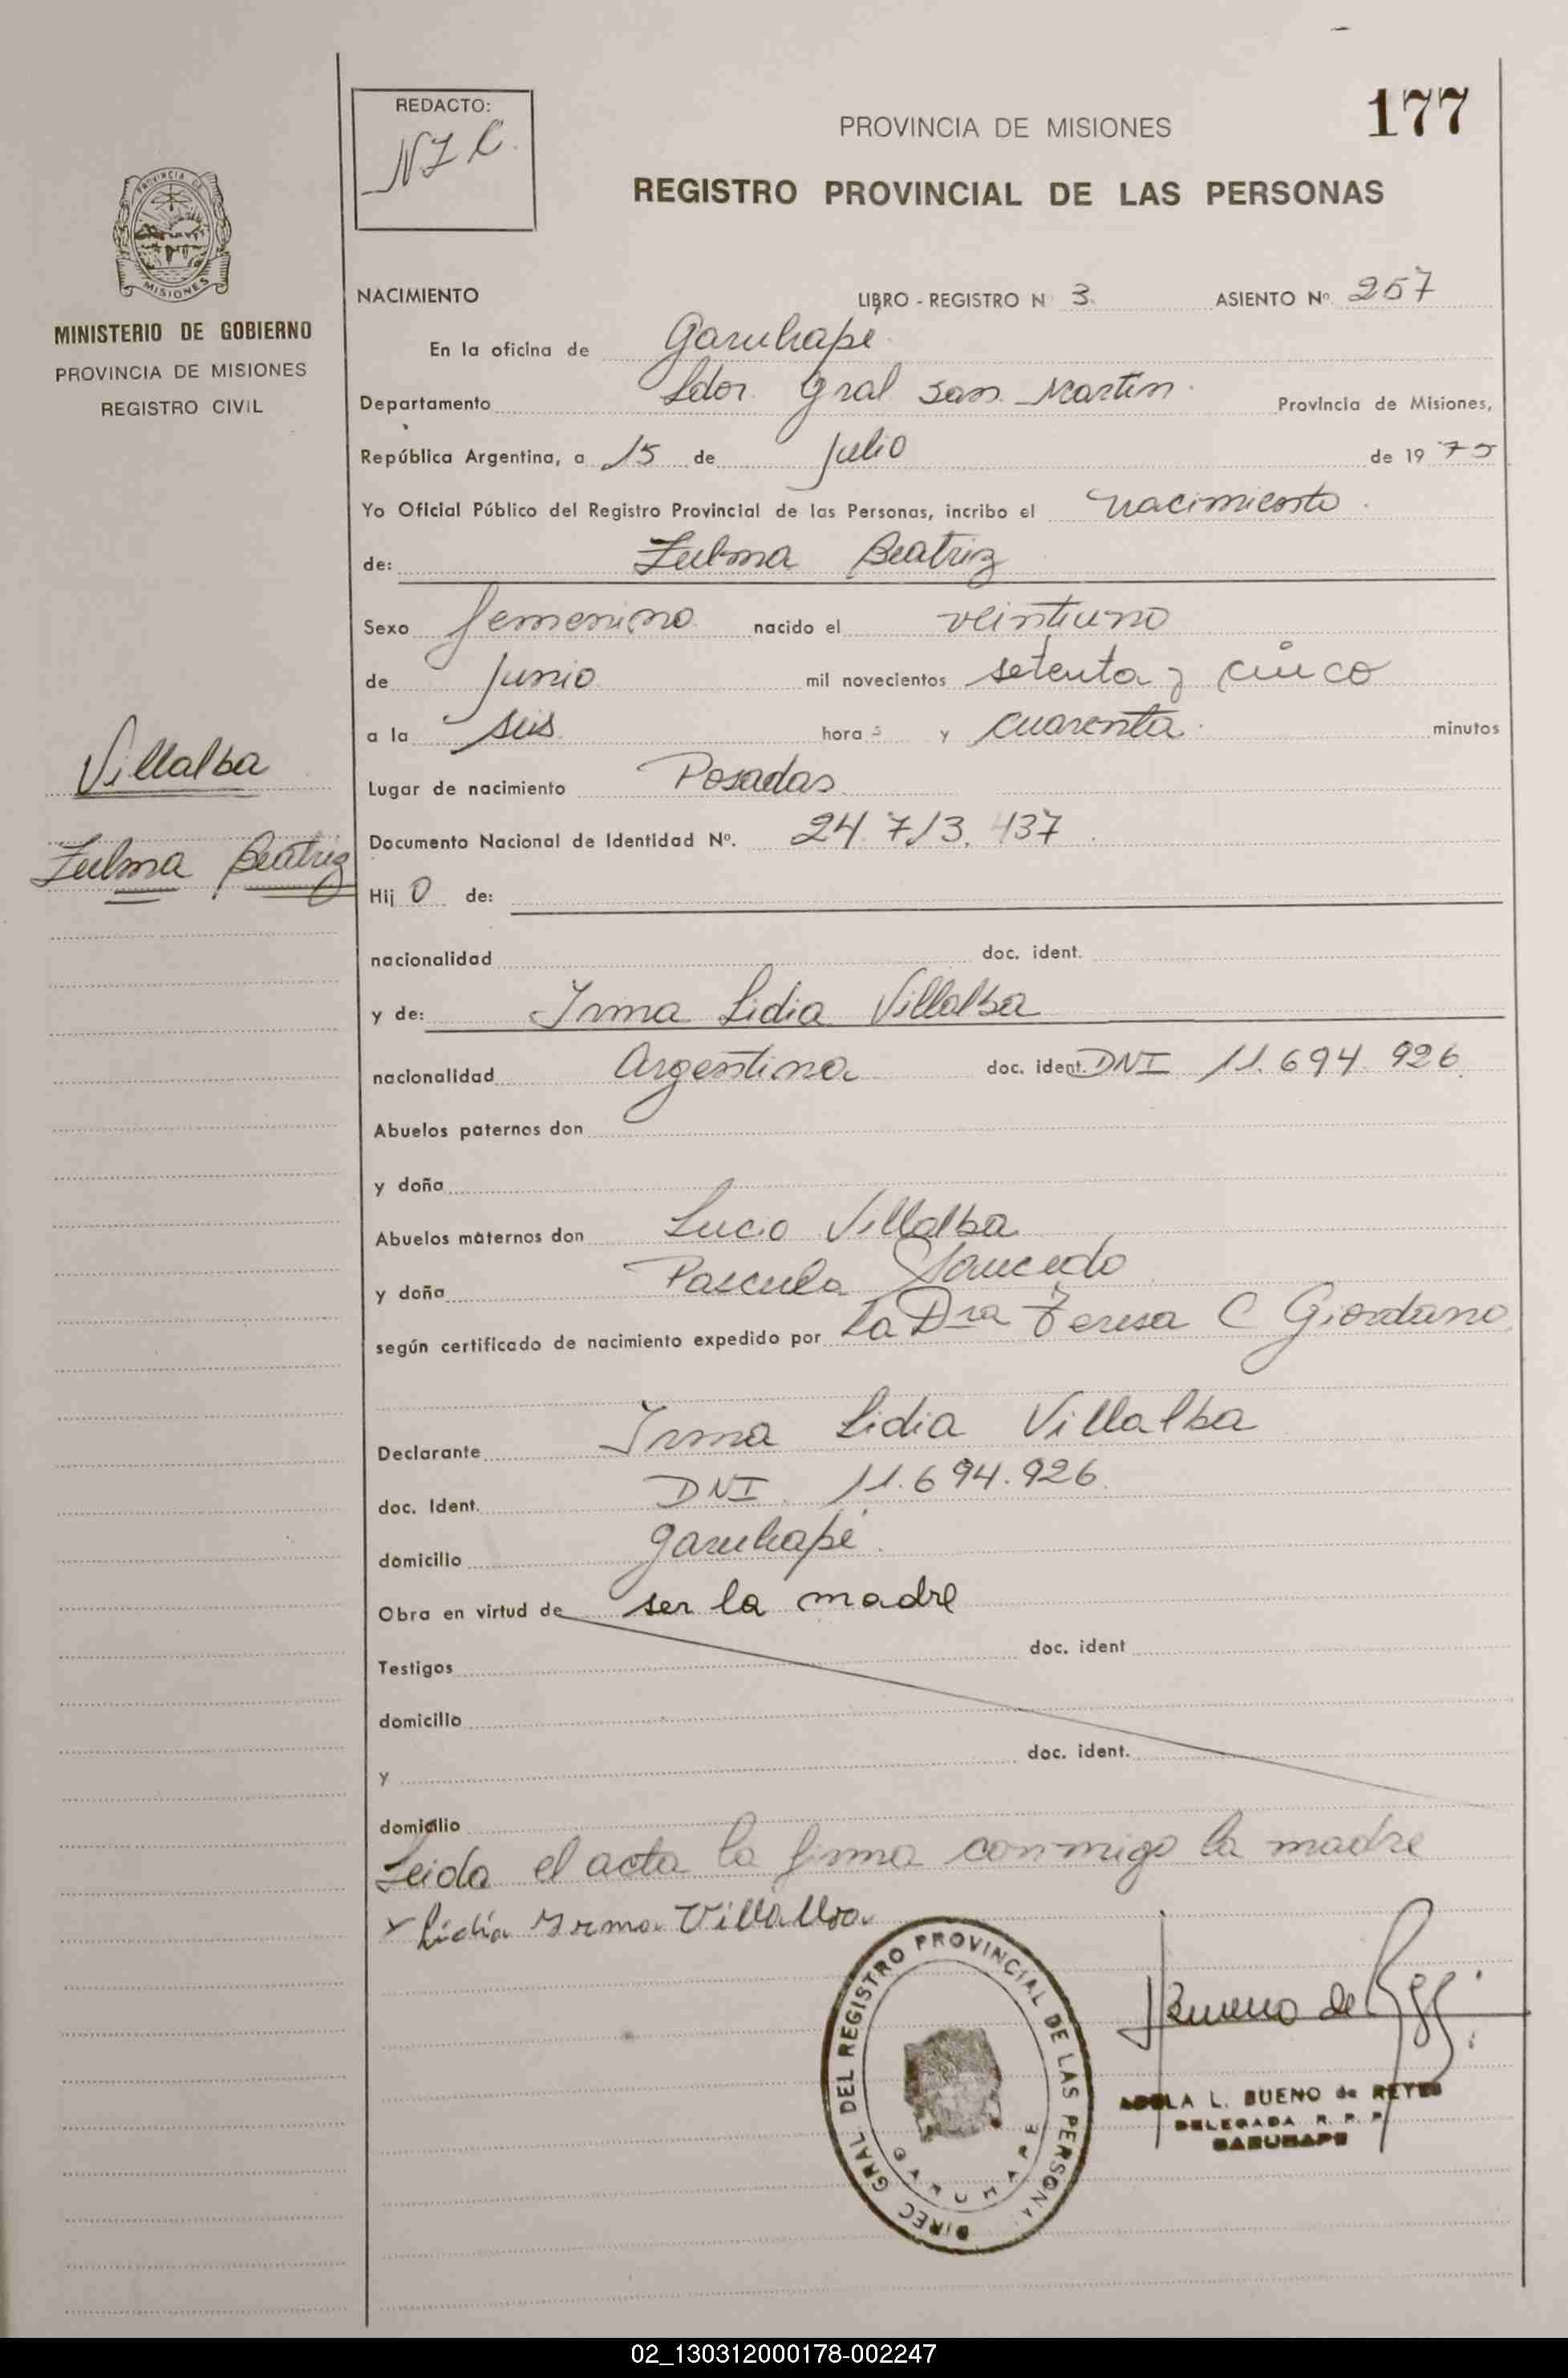 REDACTO:
PROVINCIA DE MISIONES
177
REGISTRO PROVINCIAL DE LAS PERSONAS
PROVINCIA DE
MISIONES
MINISTERIO DE GOBIERNO
PROVINCIA DE MISIONES
REGISTRO CIVIL
NACIMIENTO LIBRO - REGISTRO N 3. ASIENTO Nº 257
En la oficina de Garuhapé
Departamento Ldor. Gral San Martin Provincia de Misiones,
República Argentina, a 15 de Julio de 19 75
Yo Oficial Público del Registro Provincial de las Personas, incribo el nacimiento
de: Zulma Beatriz
Sexo femenino nacido el veintiuno
de Junio mil novecientos setenta y cinco
a la seis hora s y cuarenta minutos
Lugar de nacimiento Posadas
Villalba
Zulma Beatriz
Documento Nacional de Identidad Nº. 24.713.437
Hij o de:
nacionalidad doc. ident.
y de: Irma Lidia Villalba
nacionalidad Argentina doc. ident. DNI 11.694.926
Abuelos paternos don
y doña
Abuelos maternos don Lucio Villalba
y doña Pascula Saucedo
según certificado de nacimiento expedido por La Dra Teresa C Giordano
Declarante Irma Lidia Villalba
doc. Ident. DNI 11.694.926
domicilio Garuhapé
Obra en virtud de ser la madre
Testigos doc. ident
domicilio
y doc. ident.
domicilio
Leida el acta la firma conmigo la madre
x Lidia Irma Villalba
DIREC GRAL DEL REGISTRO PROVINCIAL DE LAS PERSONA
GARUHAPE
Bueno de
ADELA L. BUENO de REYES
DELEGADA R. P. P
GARUHAPE
02_130312000178-002247